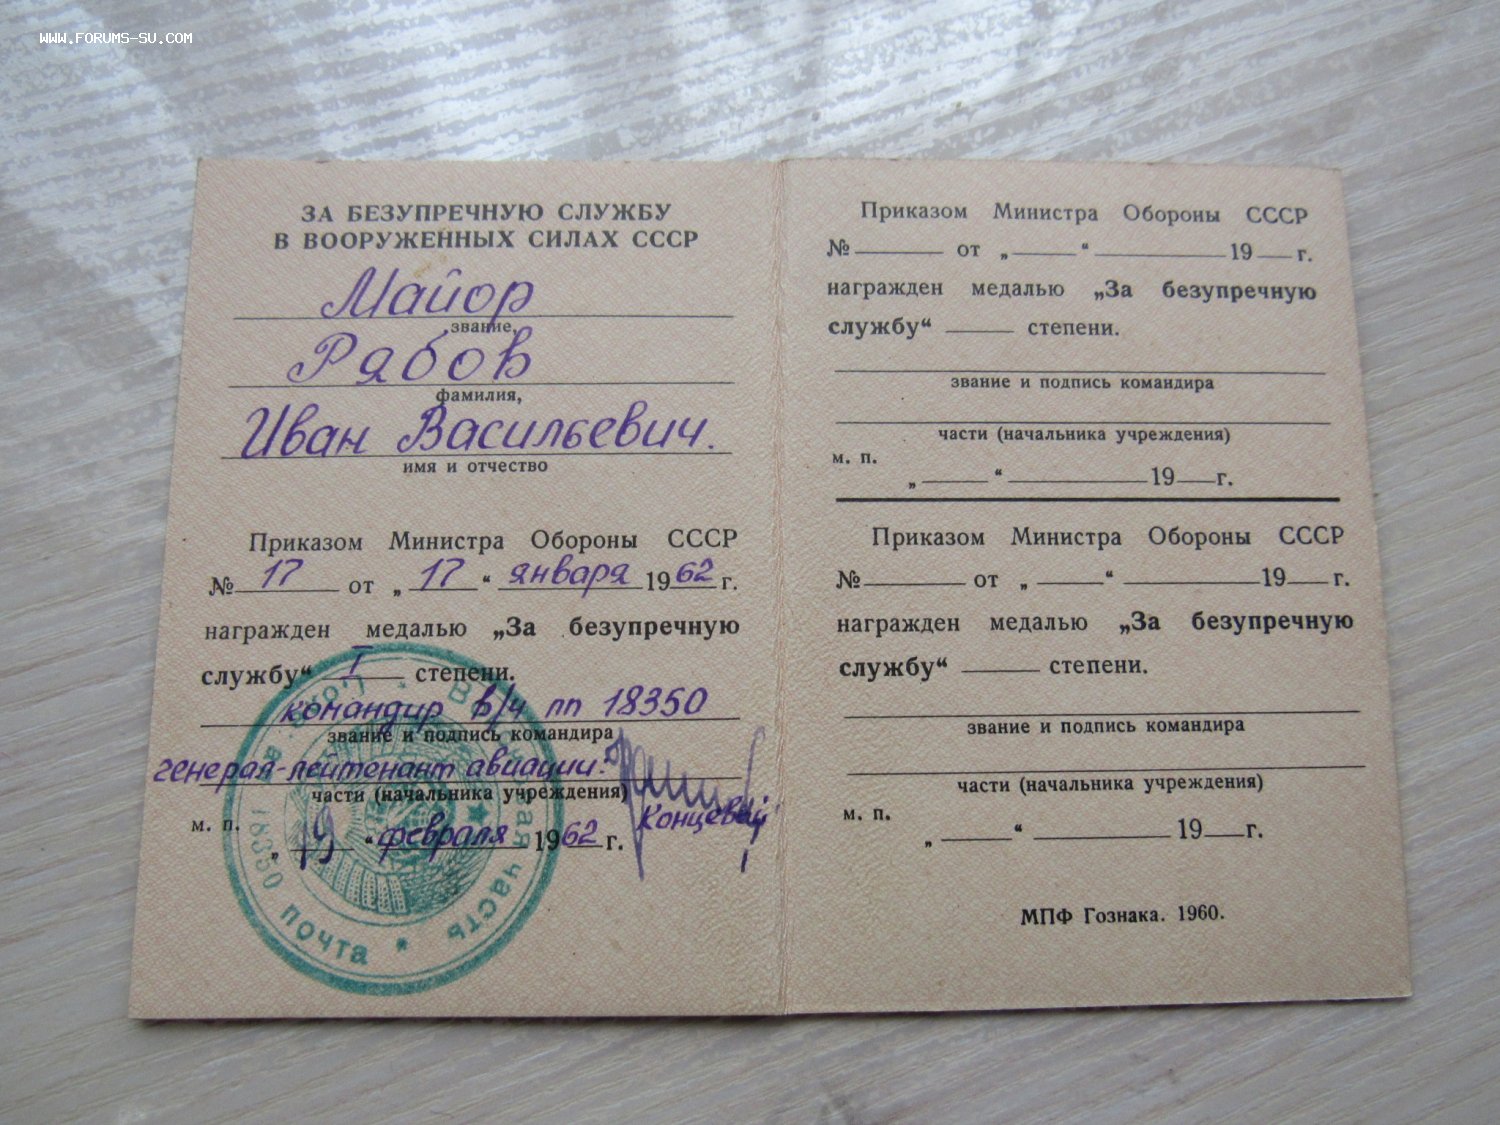 WWW.FORUMS-SU.COM
ЗА БЕЗУПРЕЧНУЮ СЛУЖБУ
В ВООРУЖЕННЫХ СИЛАХ СССР
Майор
звание,
Рябов
фамилия,
Иван Васильевич.
имя и отчество
Приказом Министра Обороны СССР
№ 17 от „17“ января 1962 г.
награжден медалью „За безупречную
службу“ I степени.
командир в/ч пп 18350
звание и подпись командира
генерал-лейтенант авиации:
части (начальника учреждения)
Концевой
м. п.
„19“ февраля 1962 г.
Войсковая часть
18350 почта
Приказом Министра Обороны СССР
№ от „ “ 19 г.
награжден медалью „За безупречную
службу“ степени.
звание и подпись командира
части (начальника учреждения)
м. п.
„ “ 19 г.
Приказом Министра Обороны СССР
№ от „ “ 19 г.
награжден медалью „За безупречную
службу“ степени.
звание и подпись командира
части (начальника учреждения)
м. п.
„ “ 19 г.
МПФ Гознака. 1960.